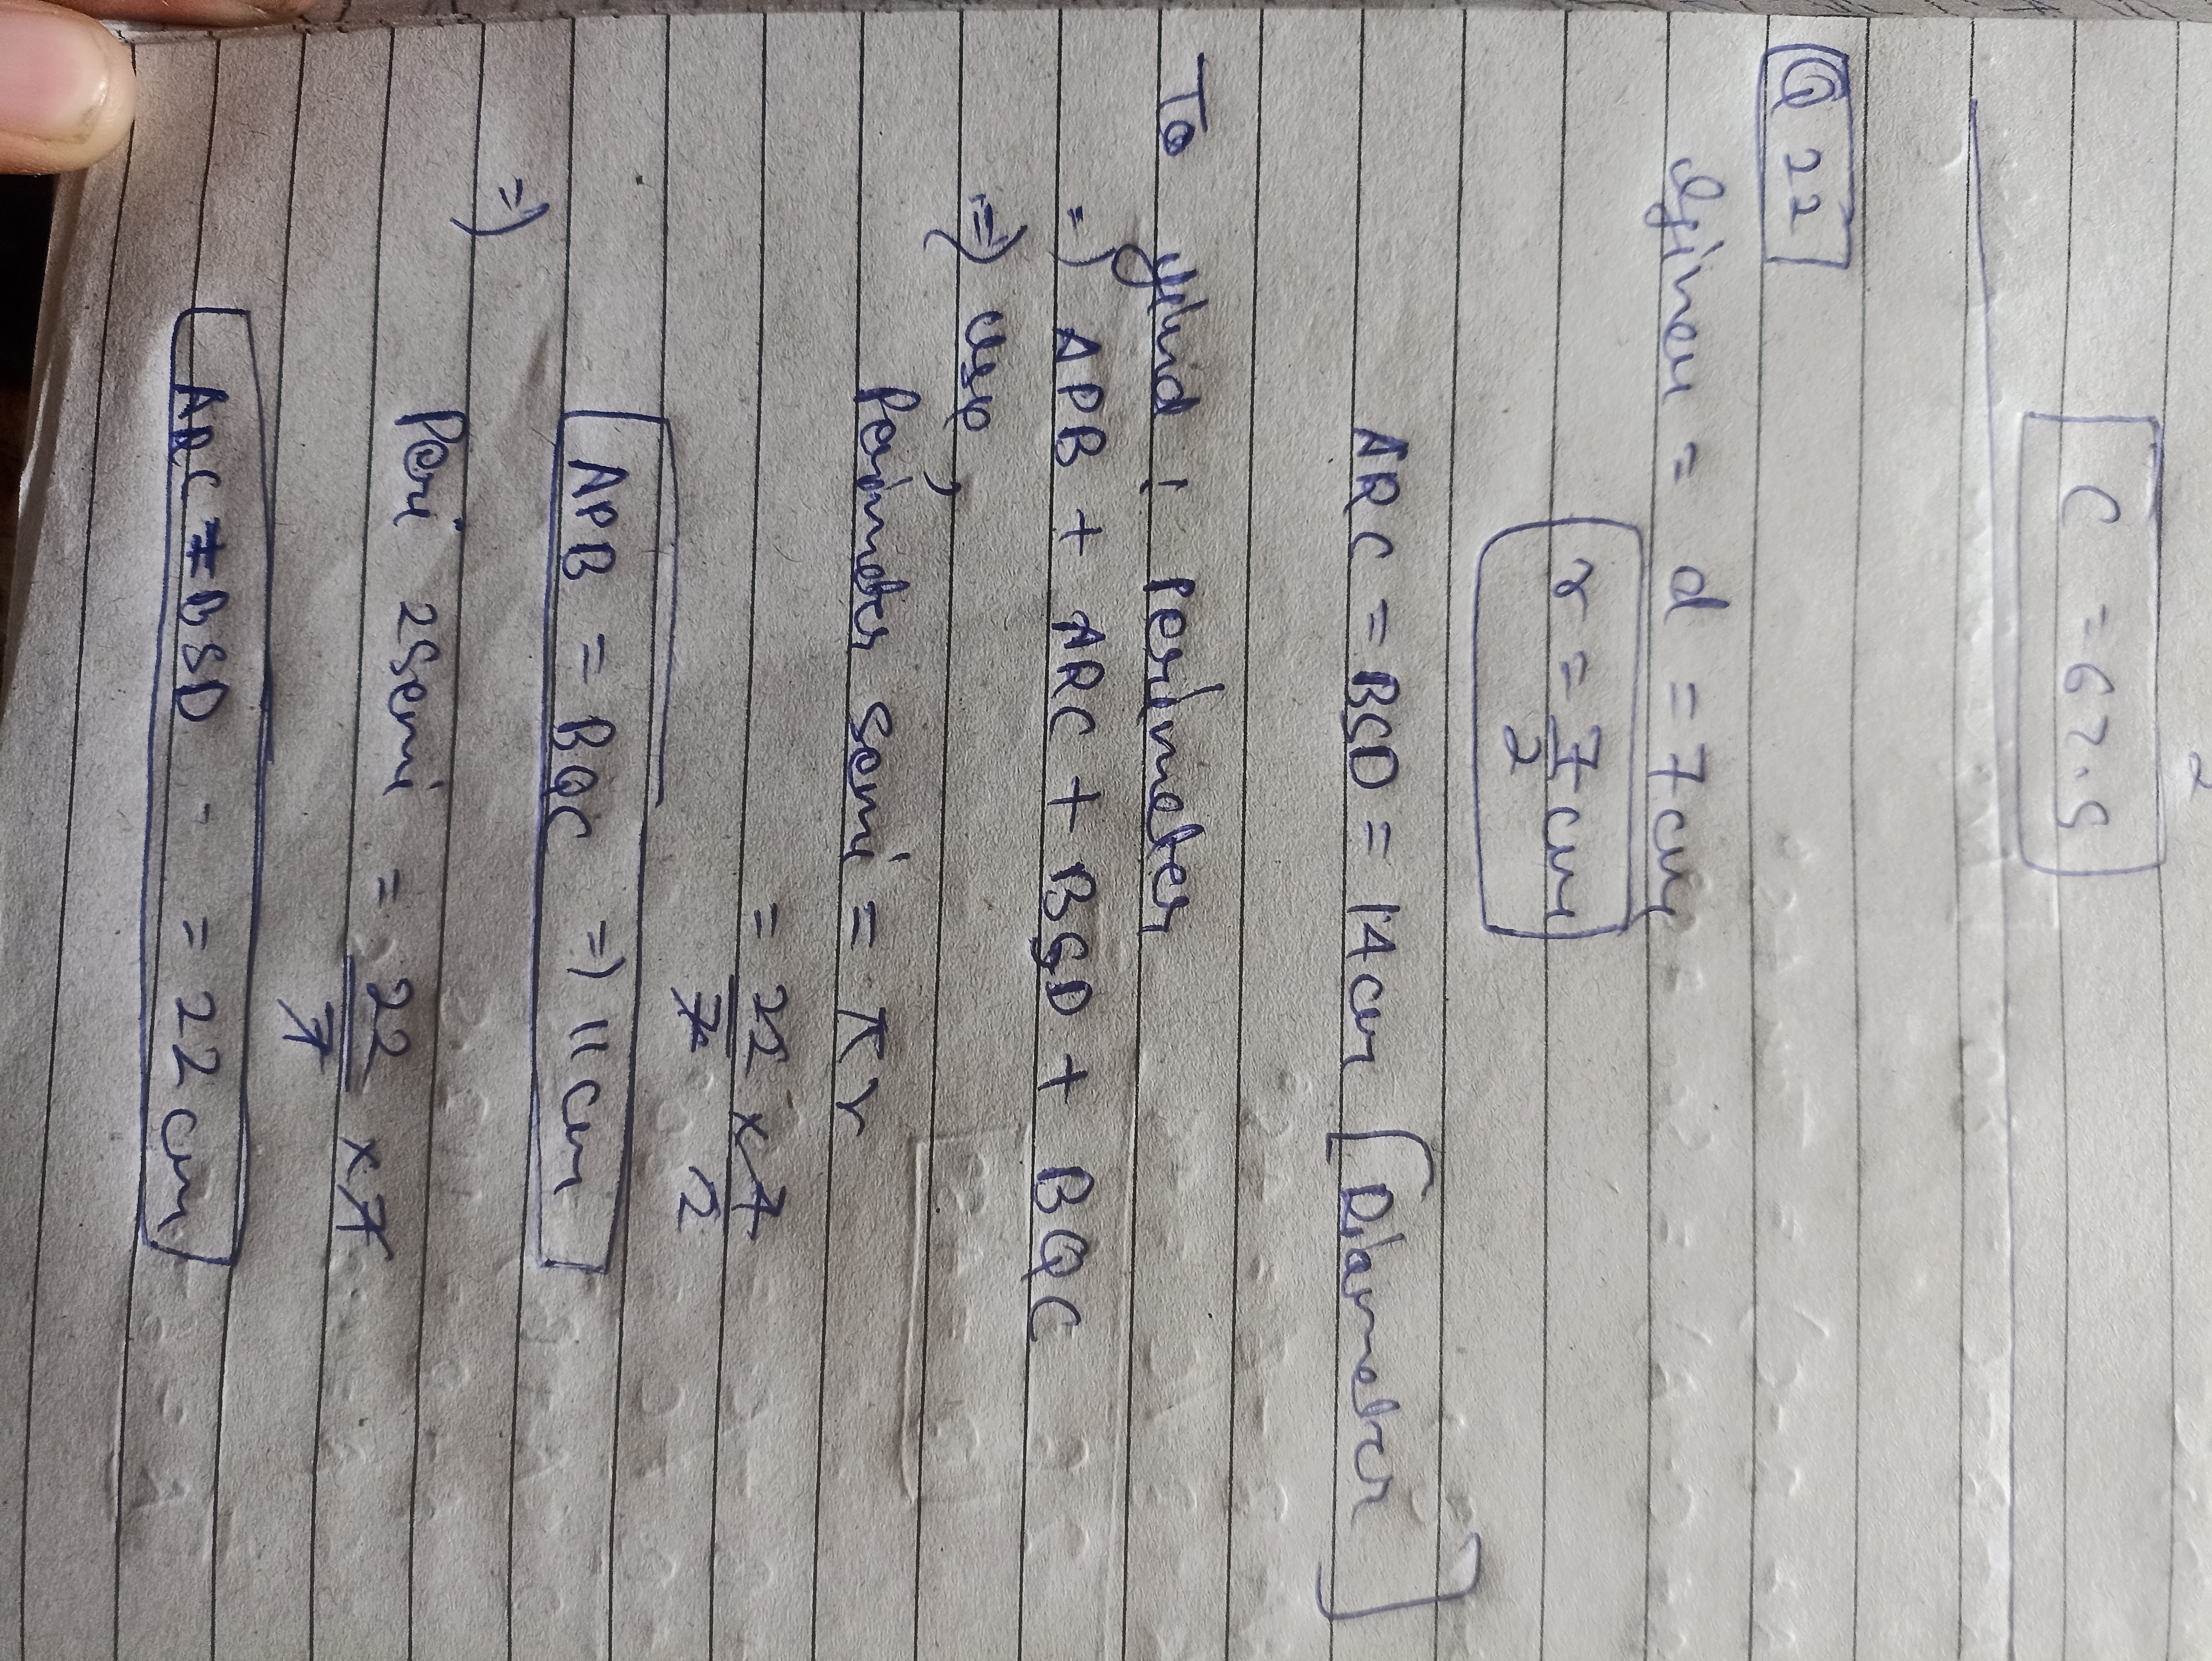 2
C = 62.5
Q 22
Given = d = 7cm
r = 7/2 cm
ARC = BCD = 14cm [Diameter]
To find : Perimeter
=) APB + ARC + BSD + BQC
=) use,
Perimeter semi = πr
= 22/7 x 7/2
APB = BQC =) 11cm
=)
Peri 2semi = 22/7 x 7
ARC = BSD - = 22cm